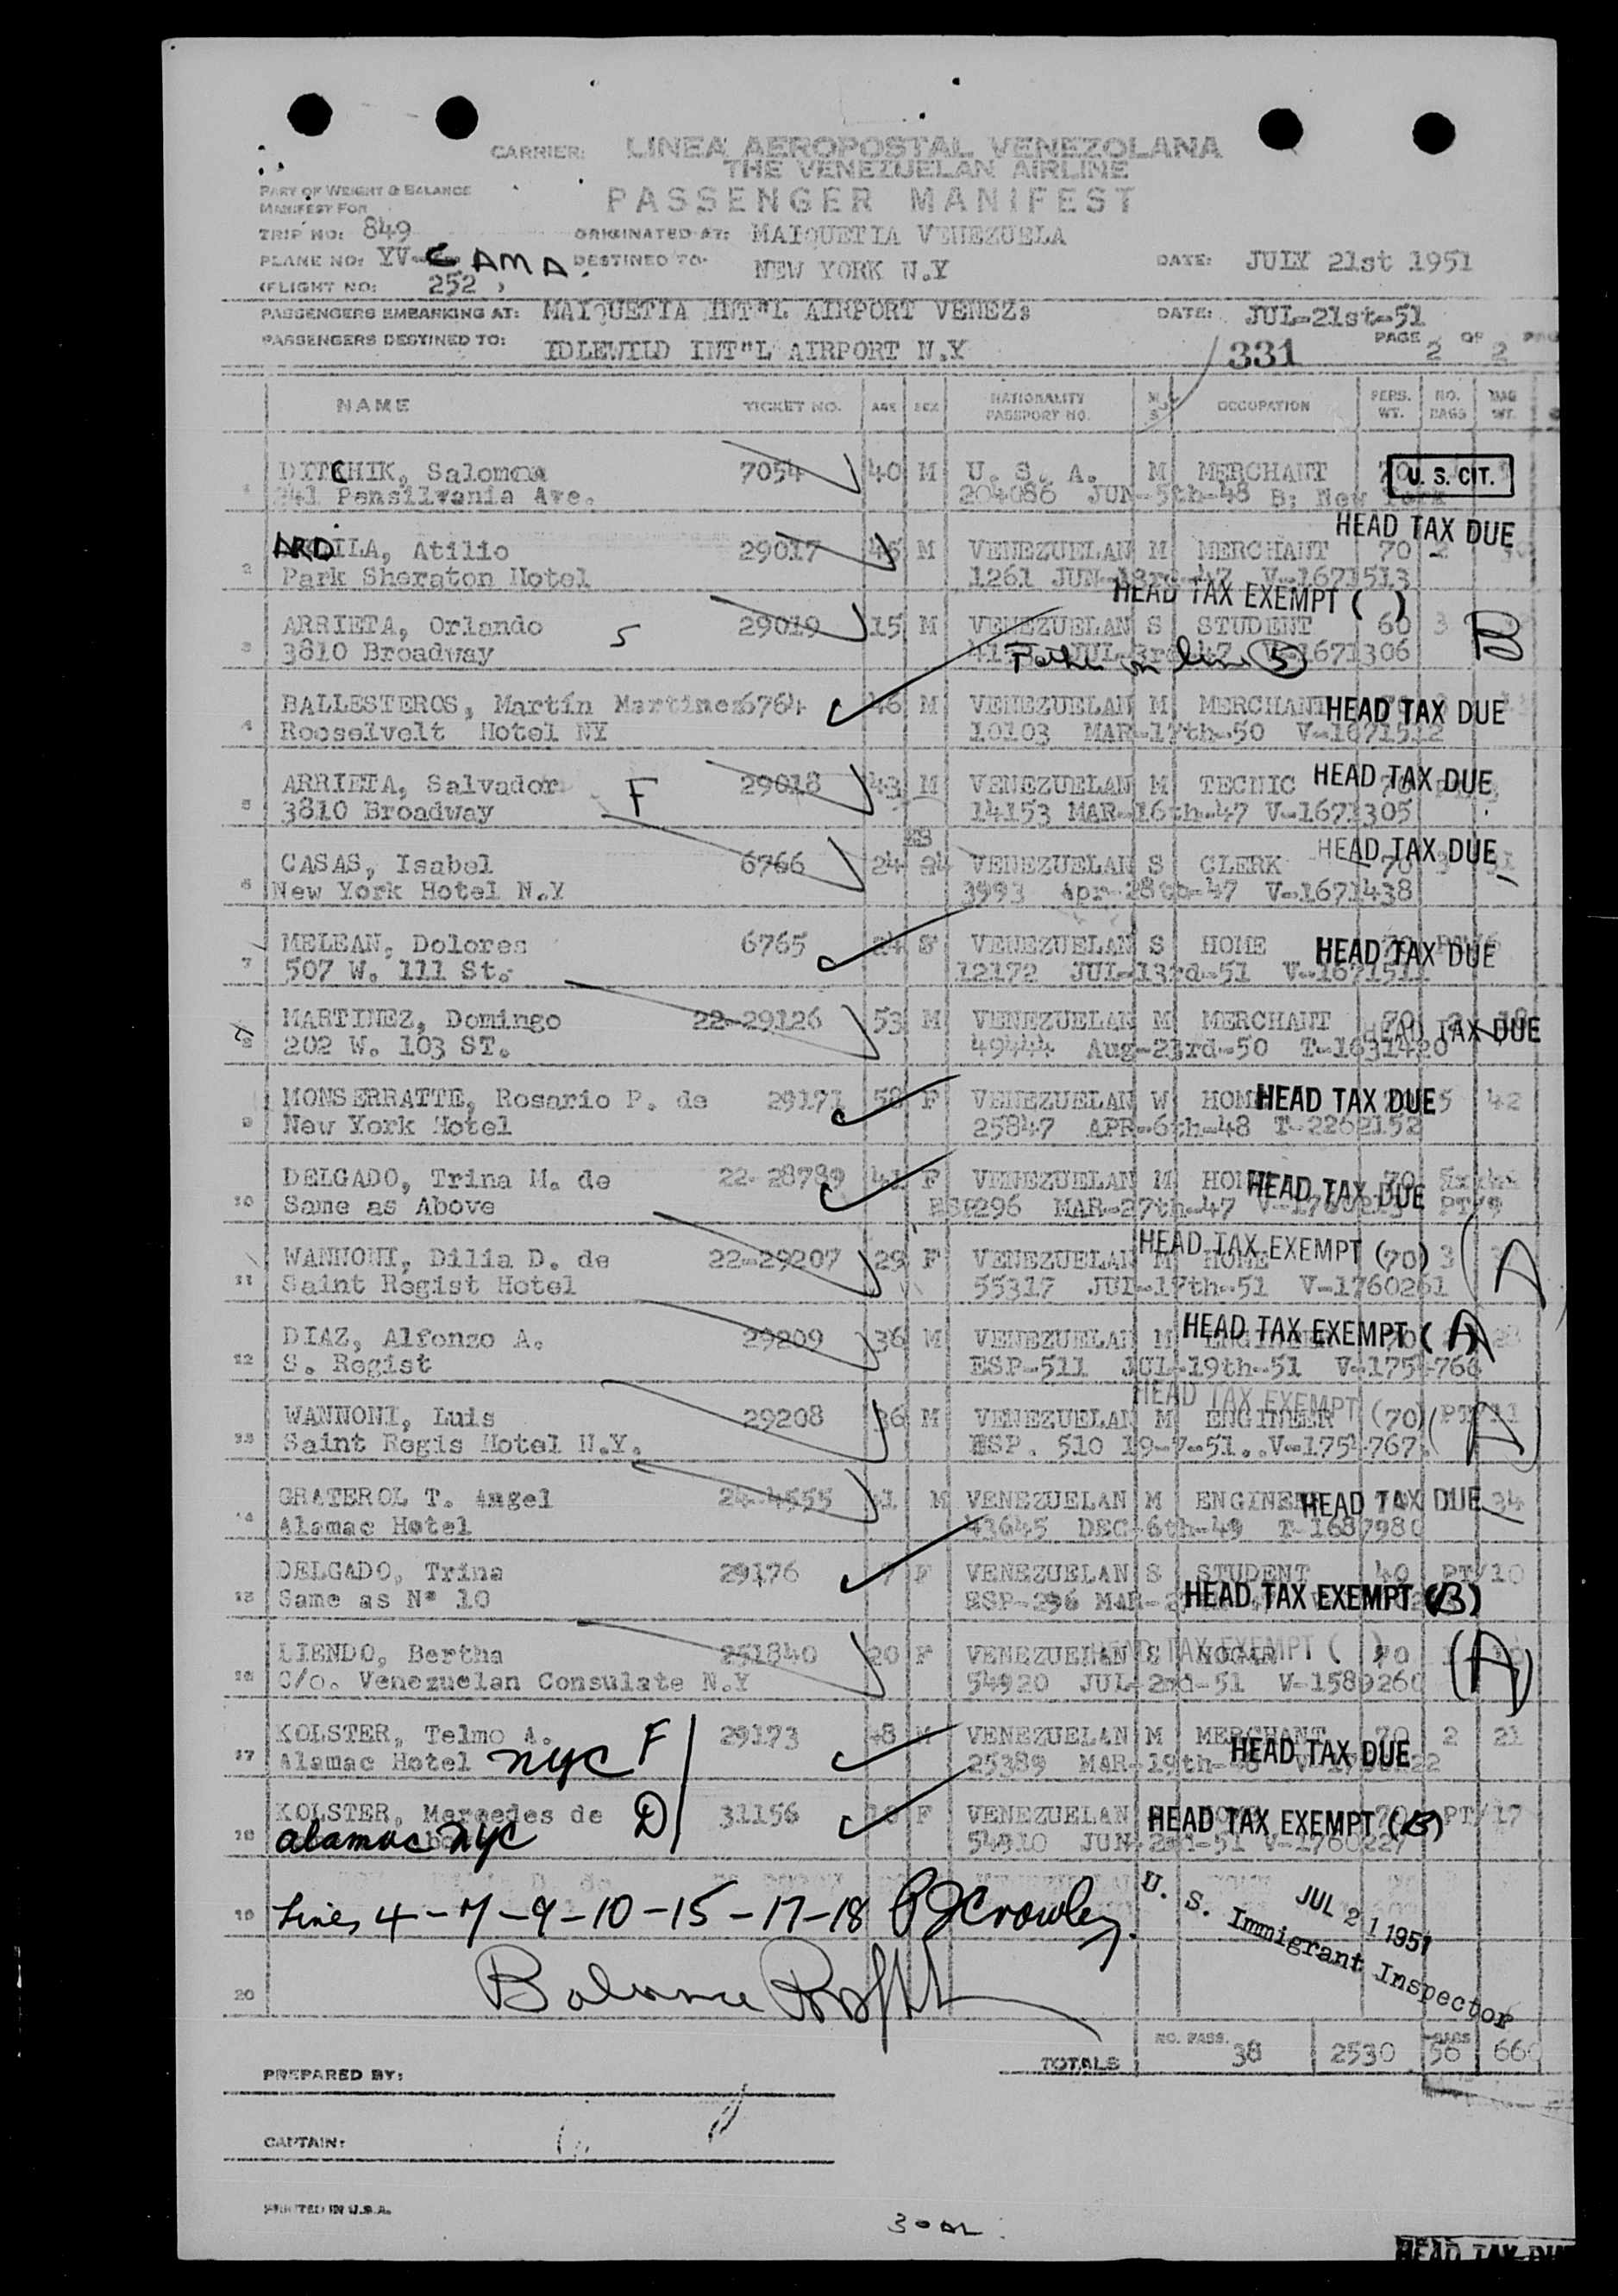 CARRIER: LINEA AEROPOSTAL VENEZOLANA
THE VENEZUELAN AIRLINE
PART OF WEIGHT & BALANCE
MANIFEST FOR
PASSENGER MANIFEST
TRIP NO: 849 ORIGINATED AT: MAIQUETIA VENEZUELA
PLANE NO: YV-C AMA. DESTINED TO: NEW YORK N.Y DATE: JULY 21st 1951
(FLIGHT NO: 252 )
PASSENGERS EMBARKING AT: MAIQUETIA INT"L AIRPORT VENEZ: DATE: JUL-21st-51
PASSENGERS DESTINED TO: IDLEWILD INT"L AIRPORT N.Y 331 PAGE 2 OF 2
NAME TICKET NO. AGE SEX NATIONALITY PASSPORT NO. OCCUPATION PERS. WT. NO. BAGS BAG WT.
1 DITCHIK, Salomon 7054 40 M U. S. A. M MERCHANT 70 U. S. CIT.
241 Pensilvania Ave. 204086 JUN-5th-48 B: New York
HEAD TAX DUE
2 ARDILA, Atilio 29017 45 M VENEZUELAN M MERCHANT 70 2
Park Sheraton Hotel 1261 JUN-13rd-47 V-1671513
HEAD TAX EXEMPT ( )
3 ARRIETA, Orlando S 29019 15 M VENEZUELAN S STUDENT 60 3 B
3810 Broadway JUL-3rd-47 V-1671306
Father on line 5
4 BALLESTEROS, Martín Martinez 6764 46 M VENEZUELAN M MERCHANT HEAD TAX DUE
Rooselvelt Hotel NY 10103 MAR-17th-50 V-1671512
5 ARRIETA, Salvador F 29018 43 M VENEZUELAN M TECNIC HEAD TAX DUE
3810 Broadway 14153 MAR-16th-47 V-1671305
6 CASAS, Isabel 6766 24 VENEZUELAN S CLERK 70 3 HEAD TAX DUE
New York Hotel N.Y 3993 Apr-28th-47 V-1671438
7 MELEAN, Dolores 6765 24 S VENEZUELAN S HOME HEAD TAX DUE
507 W. 111 St. 12172 JUL-13rd-51 V-1671511
8 MARTINEZ, Domingo 22-29126 53 M VENEZUELAN M MERCHANT 70 2 18
202 W. 103 ST. 49444 Aug-23rd-50 T-1631420 HEAD TAX DUE
9 MONSERRATTE, Rosario P. de 29171 58 F VENEZUELAN W HOME HEAD TAX DUE 5 42
New York Hotel 25847 APR-6th-48 T-2262152
10 DELGADO, Trina M. de 22-28789 41 F VENEZUELAN M HOME 70 HEAD TAX DUE
Same as Above ESP296 MAR-27th-47 PT/9
11 WANNONI, Dilia D. de 22-29207 29 F VENEZUELAN M HOME HEAD TAX EXEMPT (70) 3 (A)
Saint Regist Hotel 55317 JUL-17th-51 V-1760261
12 DIAZ, Alfonzo A. 29209 36 M VENEZUELAN M ENGINEER HEAD TAX EXEMPT (A)
S. Regist ESP-511 JUL-19th-51 V-1754766
HEAD TAX EXEMPT
13 WANNONI, Luis 29208 36 M VENEZUELAN M ENGINEER (70) PT/11 (A)
Saint Regis Hotel N.Y. ESP. 510 19-7-51..V-1754767.
14 GRATEROL T. Angel 24-4555 41 M VENEZUELAN M ENGINEER HEAD TAX DUE 34
Alamac Hotel 43645 DEC-6th-49 T-1687980
15 DELGADO, Trina 29176 7 F VENEZUELAN S STUDENT 40 PT/10
Same as Nº 10 ESP-296 MAR- HEAD TAX EXEMPT (B)
16 LIENDO, Bertha 251840 20 F VENEZUELAN S HOGAR 70 HEAD TAX EXEMPT ( ) (A)
C/o. Venezuelan Consulate N.Y 54920 JUL-2nd-51 V-1589260
17 KOLSTER, Telmo A. F 29173 48 M VENEZUELAN M MERCHANT 70 2 21
Alamac Hotel nyc 25389 MAR-19th-48 HEAD TAX DUE
18 KOLSTER, Mercedes de D 31156 18 F VENEZUELAN HEAD TAX EXEMPT (B) PT/17
alamac nyc 54910 JUN-2nd-51 V-1760227
19 Lines 4-7-9-10-15-17-18 PJCrowley
U. S. Immigrant Inspector
JUL 21 1951
20 Balance
TOTALS NO. PASS. 38 2530 BAGS 56 660
PREPARED BY:
CAPTAIN:
PRINTED IN U.S.A.
HEAD TAX DUE